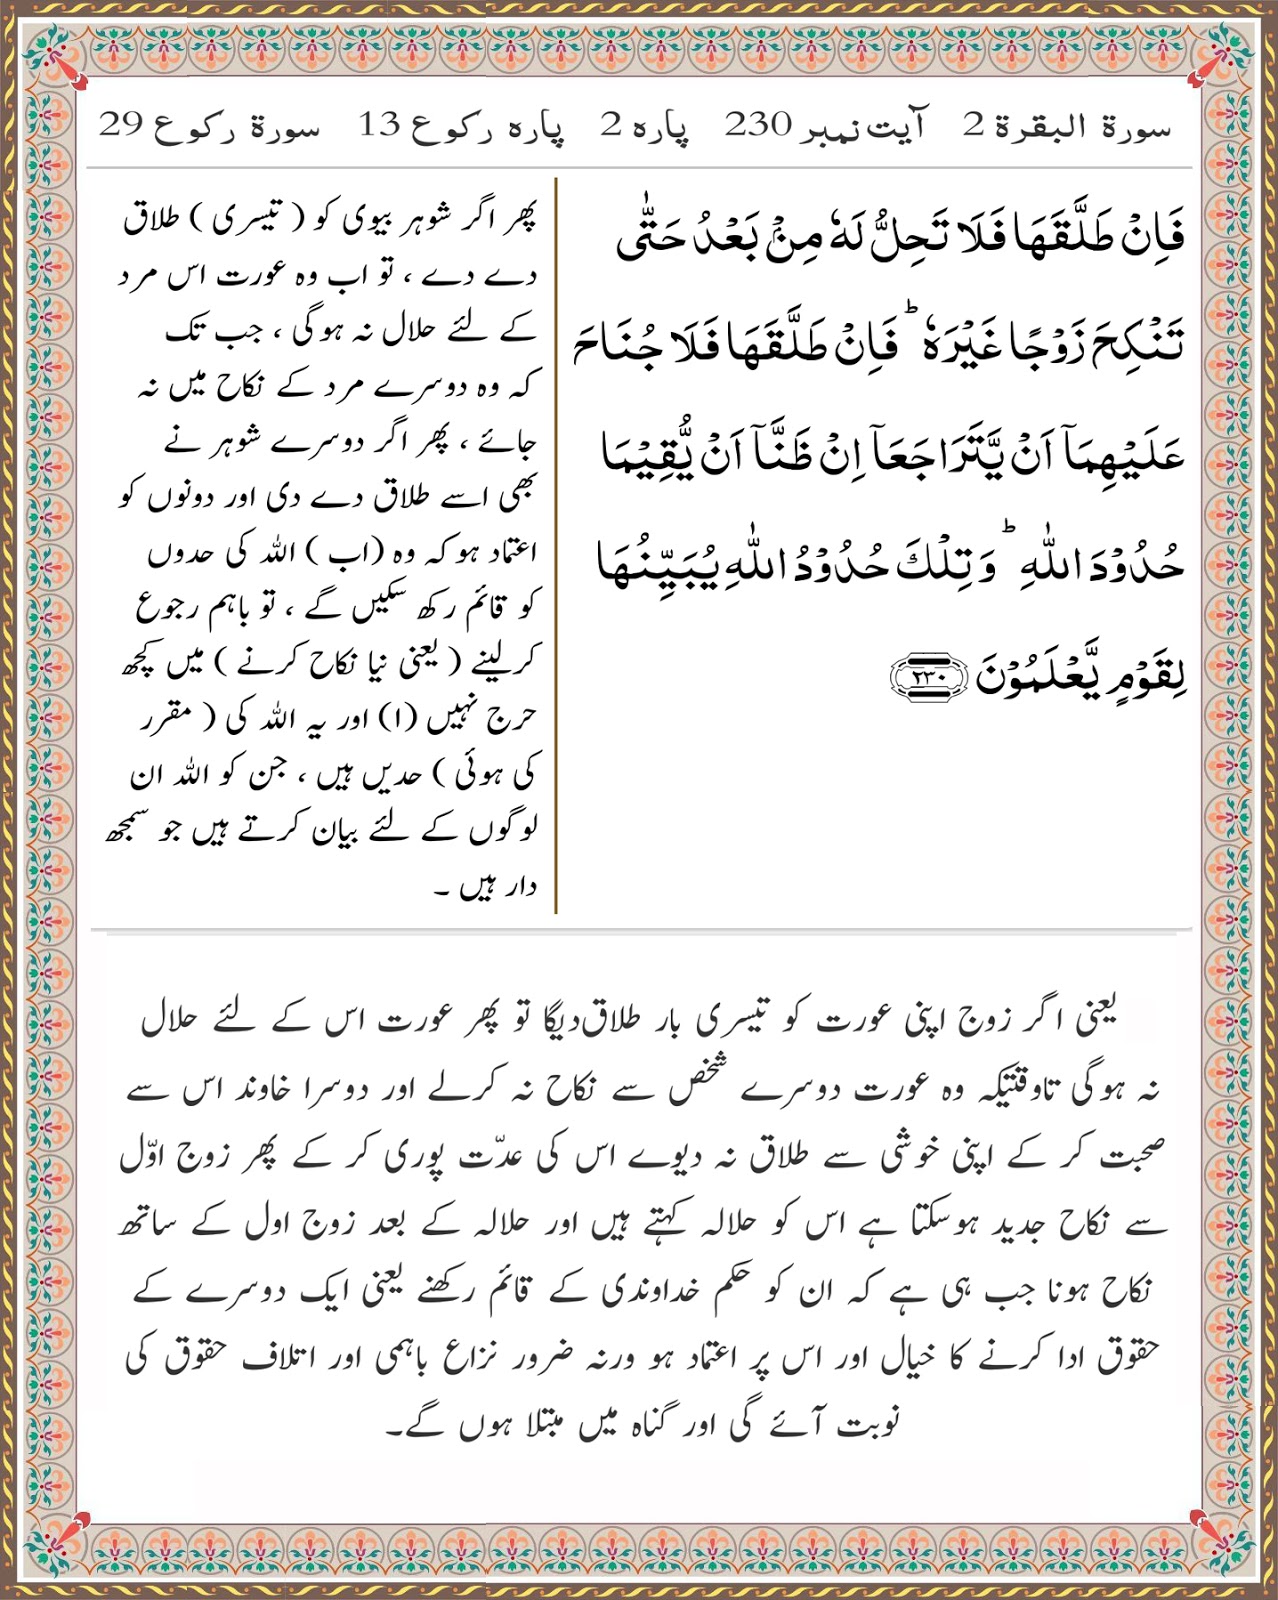 سورة البقرة 2 آیت نمبر 230 پارہ 2 پارہ رکوع 13 سورة رکوع 29
فَاِنۡ طَلَّقَهَا فَلَا تَحِلُّ لَهٗ مِنۡۢ بَعۡدُ حَتّٰى
تَنۡكِحَ زَوۡجًا غَيۡرَهٗ ؕ فَاِنۡ طَلَّقَهَا فَلَا جُنَاحَ
عَلَيۡهِمَآ اَنۡ يَّتَرَاجَعَآ اِنۡ ظَنَّآ اَنۡ يُّقِيۡمَا
حُدُوۡدَ اللّٰهِ ؕ وَتِلۡكَ حُدُوۡدُ اللّٰهِ يُبَيِّنُهَا
لِقَوۡمٍ يَّعۡلَمُوۡنَ ﴿۲۳۰﴾
پھر اگر شوہر بیوی کو ( تیسری ) طلاق
دے دے ، تو اب وہ عورت اس مرد
کے لئے حلال نہ ہوگی ، جب تک
کہ وہ دوسرے مرد کے نکاح میں نہ
جائے ، پھر اگر دوسرے شوہر نے
بھی اسے طلاق دے دی اور دونوں کو
اعتماد ہو کہ وہ (اب ) اللہ کی حدوں
کو قائم رکھ سکیں گے ، تو باہم رجوع
کرلینے ( یعنی نیا نکاح کرنے ) میں کچھ
حرج نہیں (۱) اور یہ اللہ کی ( مقرر
کی ہوئی ) حدیں ہیں ، جن کو اللہ ان
لوگوں کے لئے بیان کرتے ہیں جو سمجھ
دار ہیں ۔
یعنی اگر زوج اپنی عورت کو تیسری بار طلاق دیگا تو پھر عورت اس کے لئے حلال
نہ ہوگی تاوقتیکہ وہ عورت دوسرے شخص سے نکاح نہ کرلے اور دوسرا خاوند اس سے
صحبت کر کے اپنی خوشی سے طلاق نہ دیوے اس کی عدّت پوری کر کے پھر زوج اوّل
سے نکاح جدید ہوسکتا ہے اس کو حلالہ کہتے ہیں اور حلالہ کے بعد زوج اول کے ساتھ
نکاح ہونا جب ہی ہے کہ ان کو حکم خداوندی کے قائم رکھنے یعنی ایک دوسرے کے
حقوق ادا کرنے کا خیال اور اس پر اعتماد ہو ورنہ ضرور نزاع باہمی اور اتلاف حقوق کی
نوبت آئے گی اور گناہ میں مبتلا ہوں گے۔